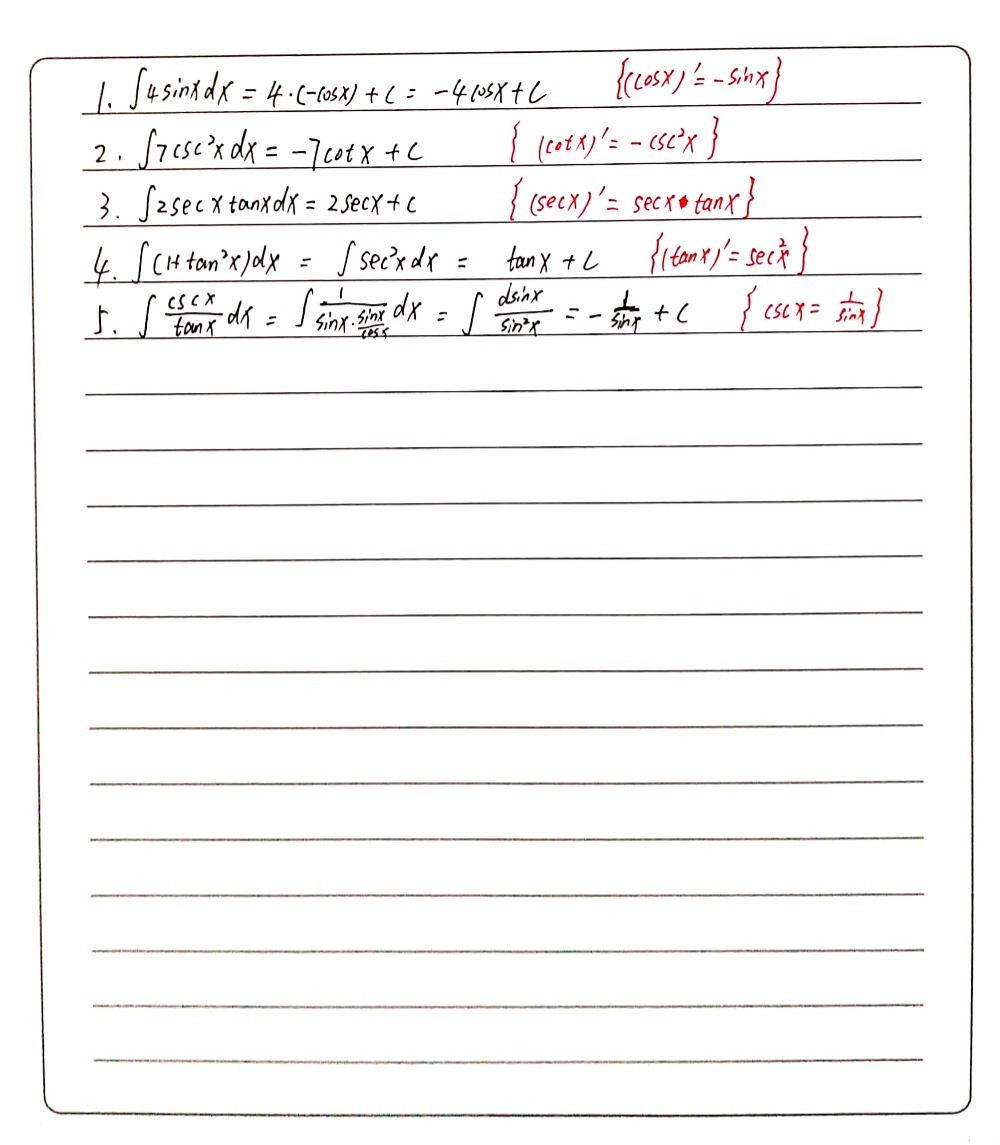 1. ∫4sinxdx = 4·(-cosx)+C = -4cosx+C {(cosx)'=-sinx}
2. ∫7csc²xdx = -7cotx+C {(cotx)'=-csc²x}
3. ∫2secxtanxdx = 2secx+C {(secx)'=secx•tanx}
4. ∫(1+tan²x)dx = ∫sec²xdx = tanx+C {(tanx)'=sec²x}
5. ∫cscx/tanx dx = ∫1/(sinx·sinx/cosx) dx = ∫dsinx/sin²x = -1/sinx + C {cscx=1/sinx}